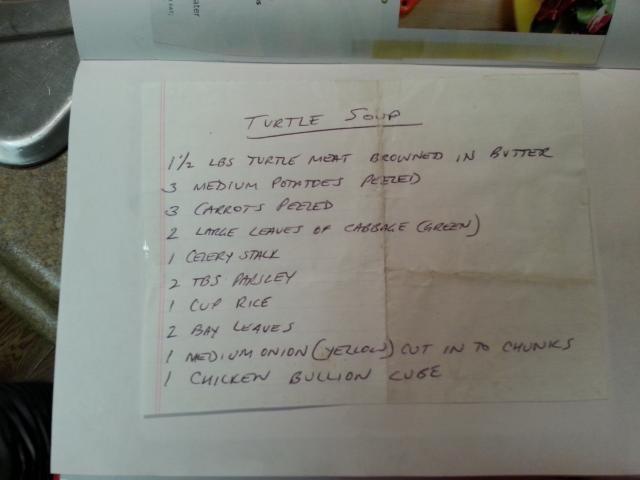 ater
TURTLE SOUP
1 1/2 LBS TURTLE MEAT BROWNED IN BUTTER
3 MEDIUM POTATOES PEELED
3 CARROTS PEELED
2 LARGE LEAVES OF CABBAGE (GREEN)
1 CELERY STALK
2 TBS PARSLEY
1 CUP RICE
2 BAY LEAVES
1 MEDIUM ONION (YELLOW) CUT IN TO CHUNKS
1 CHICKEN BULLION CUBE